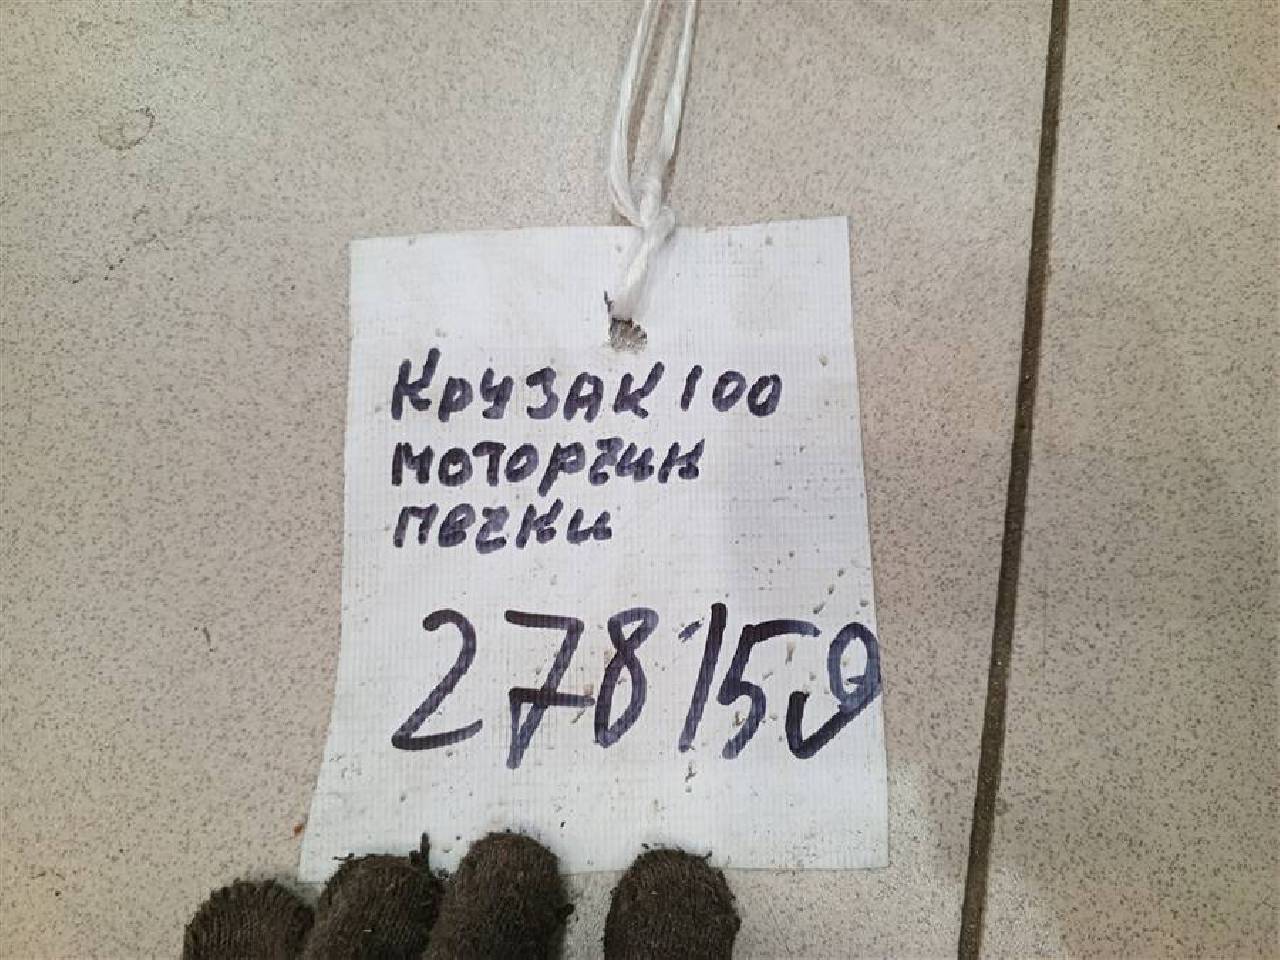 Крузак 100
моторчик
печки
278159